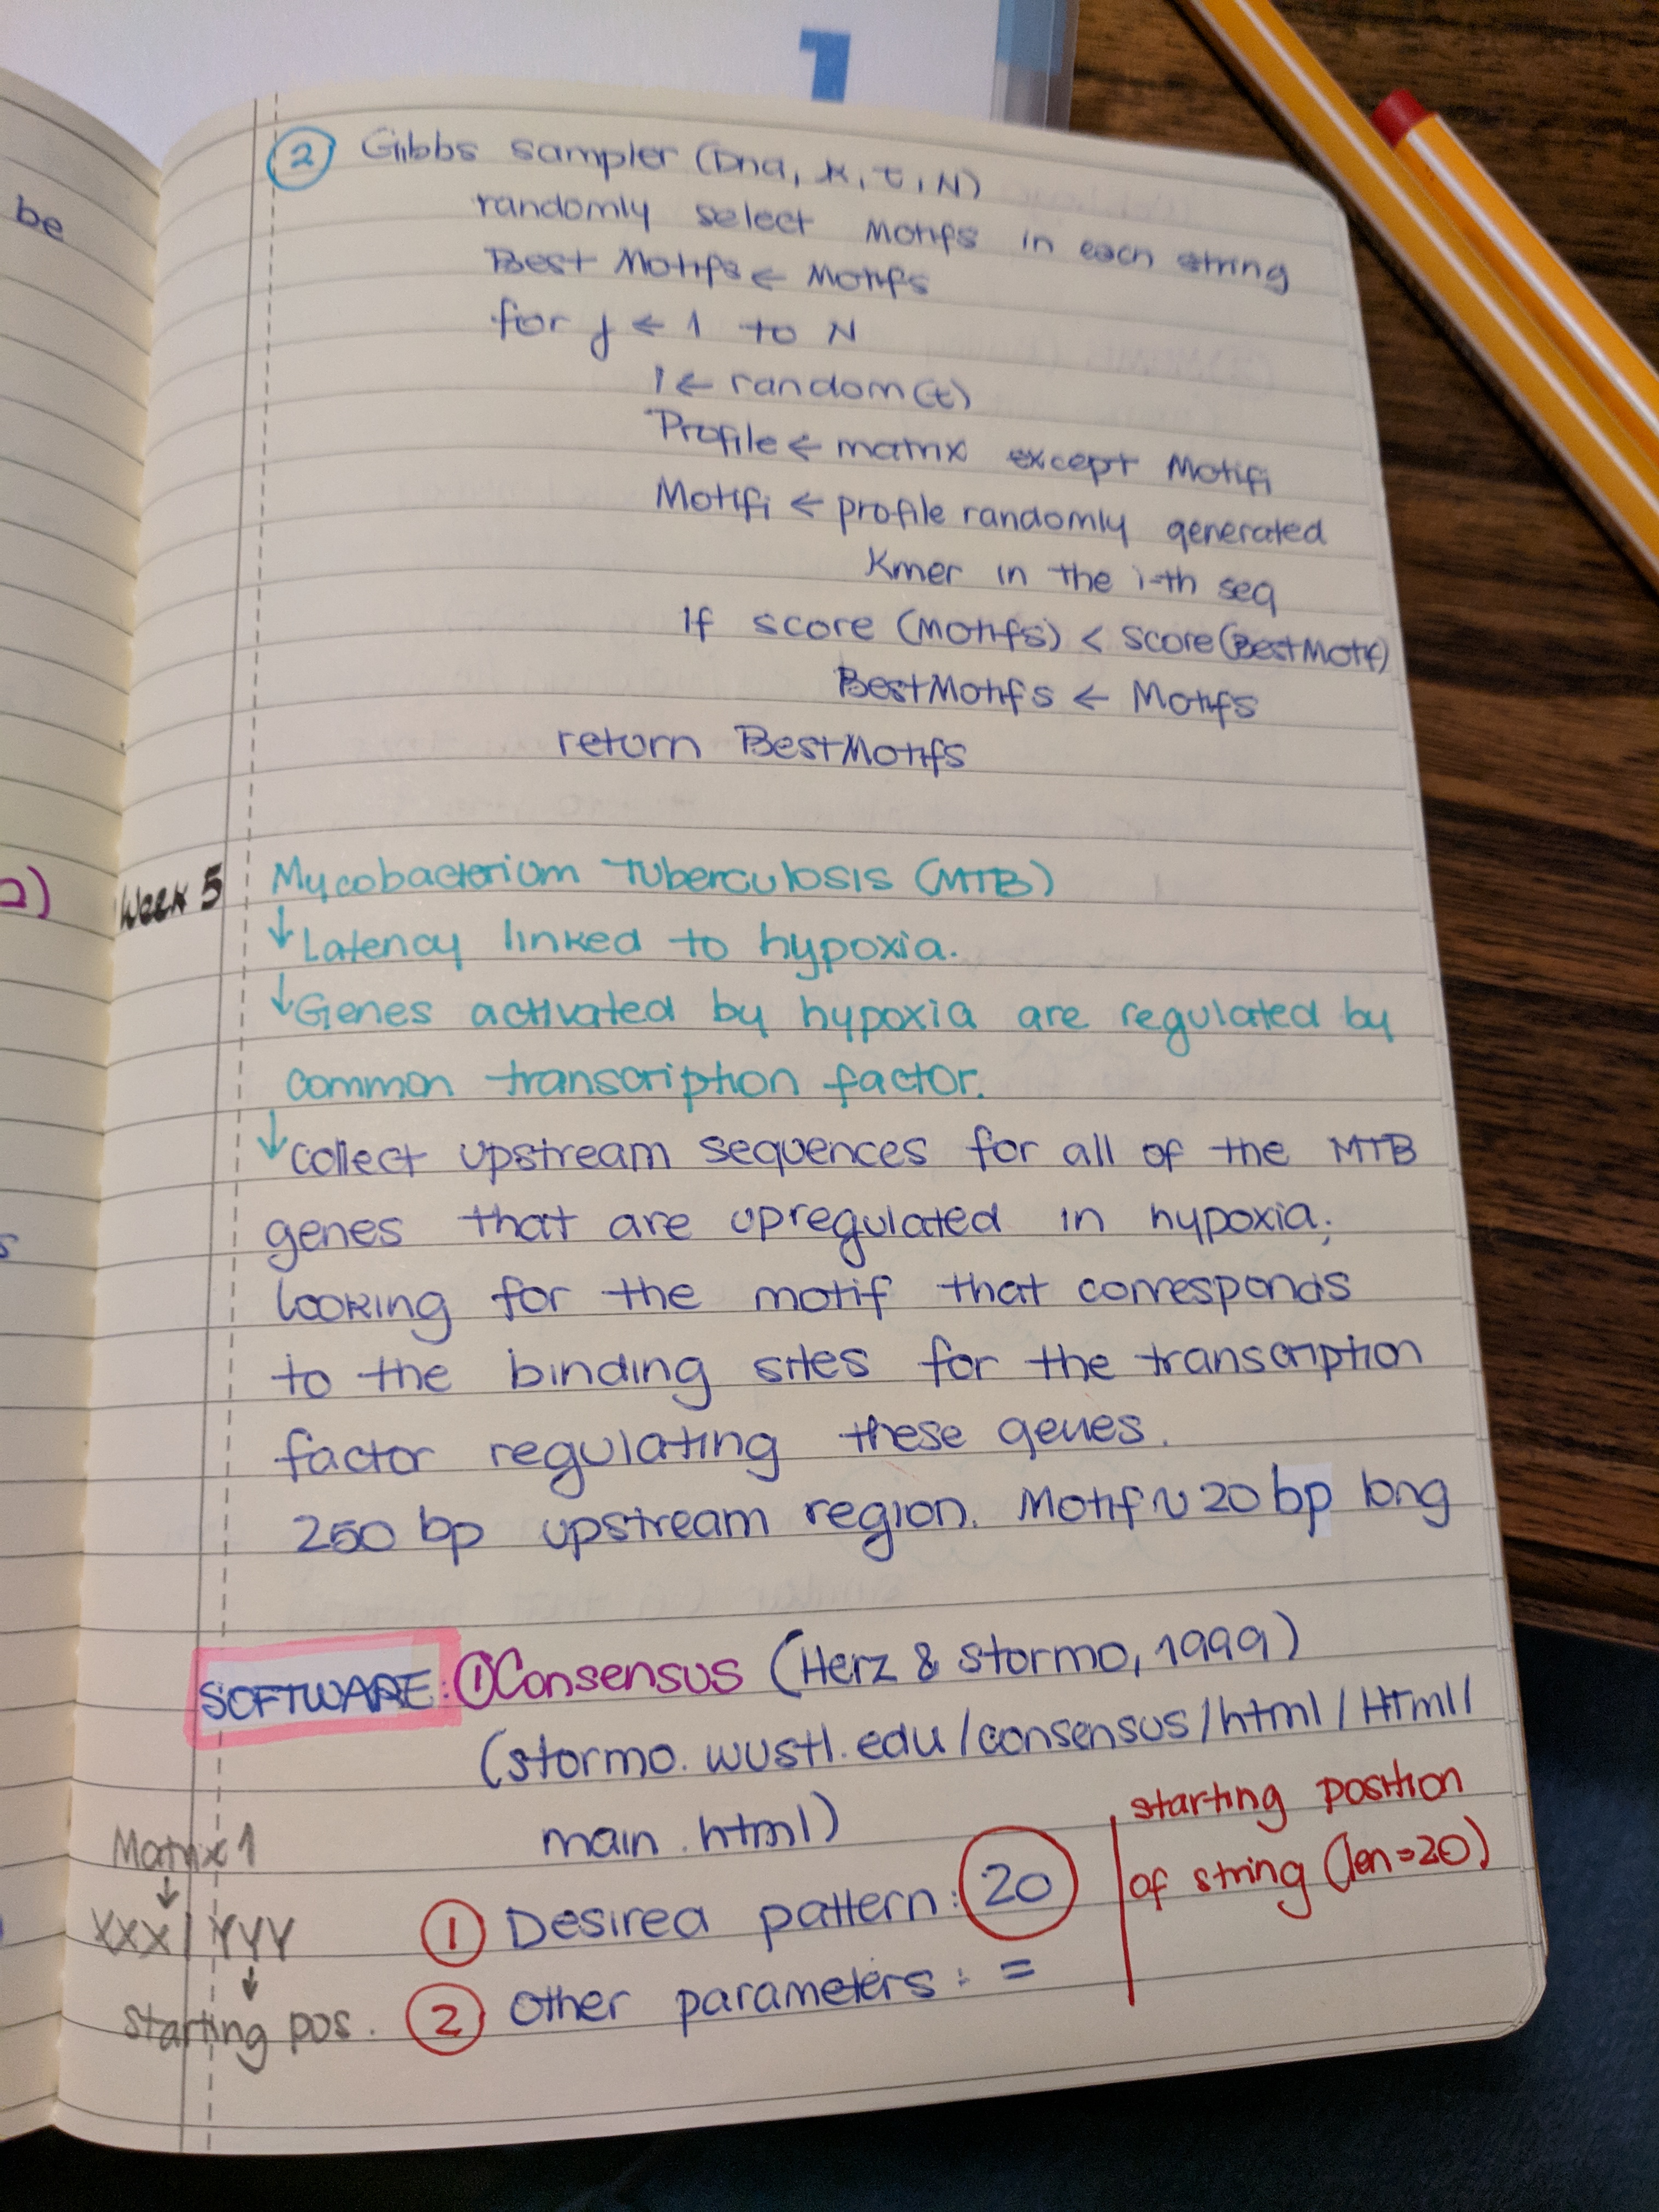 1
be
2 Gibbs sampler (Dna, k, t, N)
randomly select Motifs in each string
Best Motifs ← Motifs
for j ← 1 to N
i ← random(t)
Profile ← matrix except Motifi
Motifi ← profile randomly generated
Kmer in the i-th seq
If score (Motifs) < score(BestMotif)
BestMotifs ← Motifs
return BestMotifs
Week 5
Mycobacterium Tuberculosis (MTB)
↓ Latency linked to hypoxia.
↓ Genes activated by hypoxia are regulated by
common transcription factor.
↓ collect upstream sequences for all of the MTB
genes that are upregulated in hypoxia;
looking for the motif that corresponds
to the binding sites for the transcription
factor regulating these genes.
250 bp upstream region. Motif ~ 20 bp long
SOFTWARE: ① Consensus (Herz & Stormo, 1999)
(stormo.wustl.edu/consensus/html/Html/
main.html)
① Desired pattern: 20
starting position
of string (len=20)
② Other parameters: =
Matrix 1
↓
XXX | YYY
↓
Starting pos.